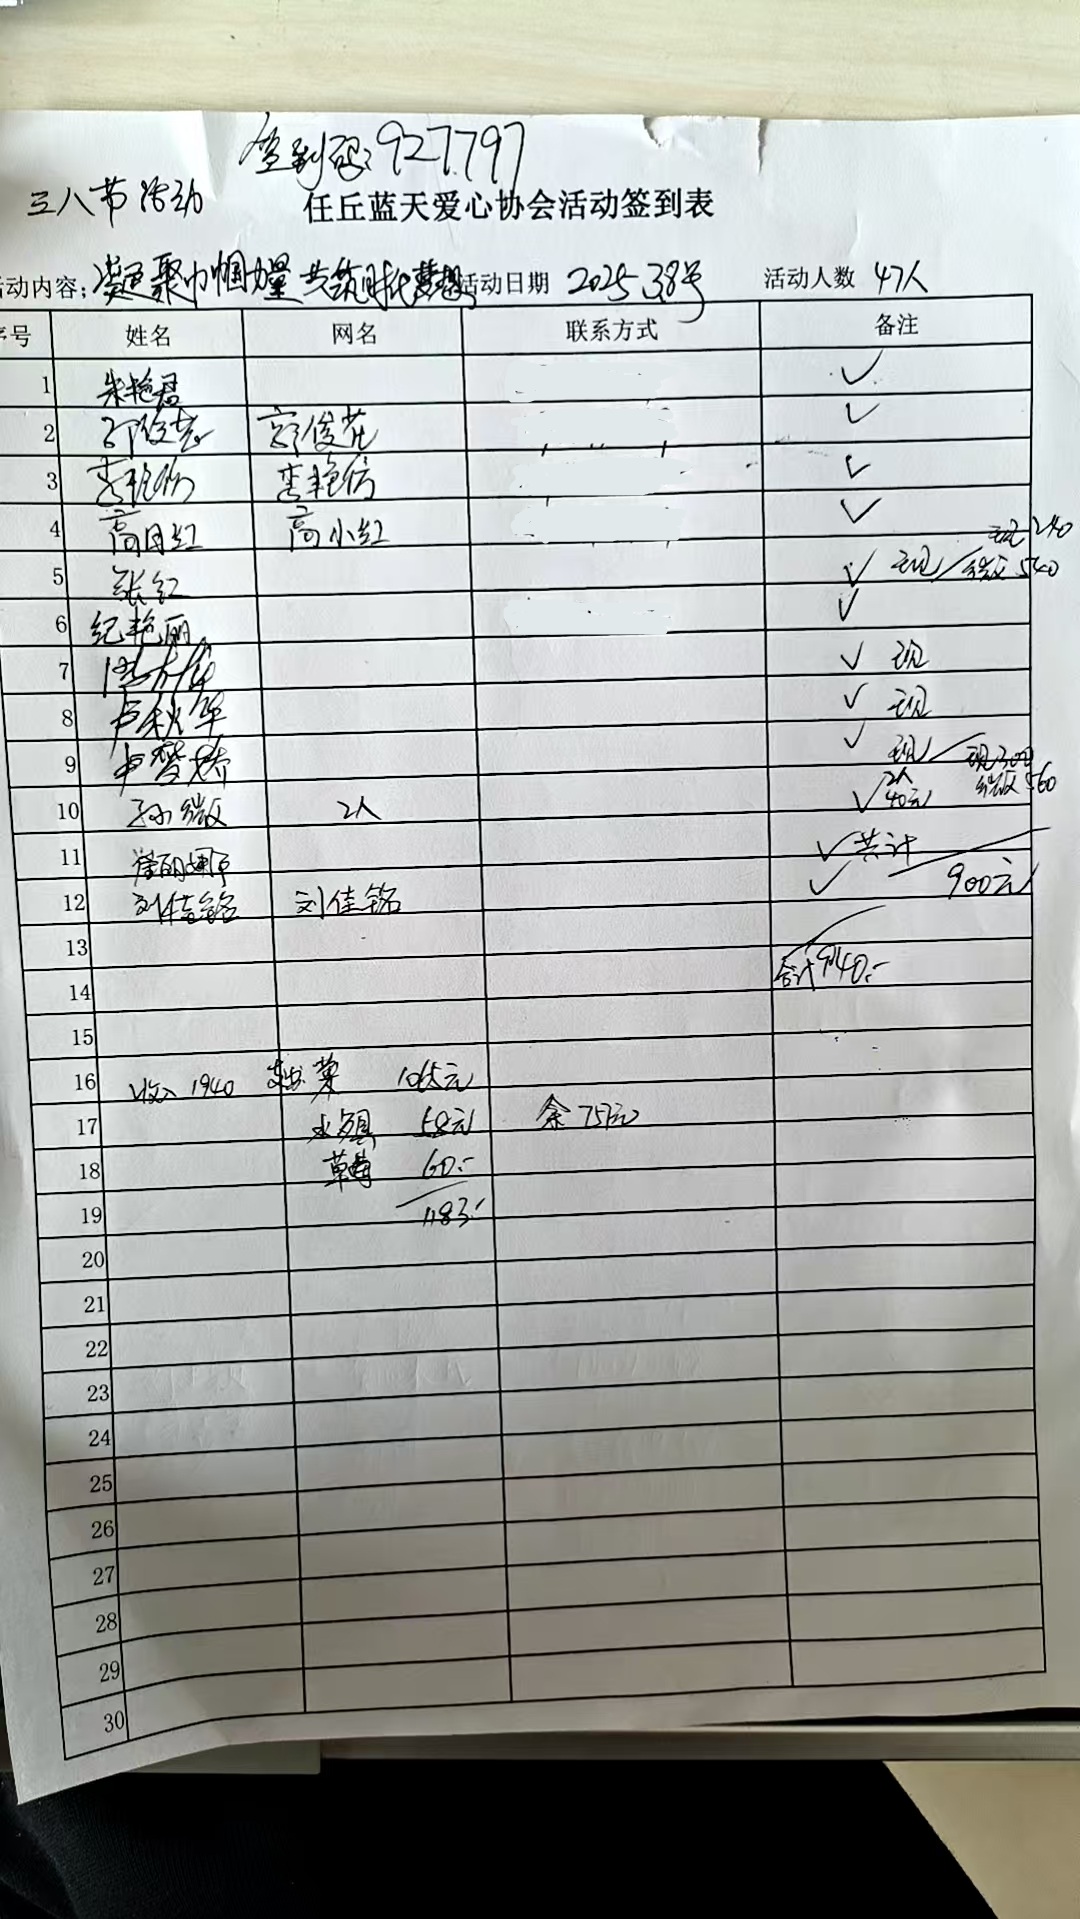 签到码:927797
三八节活动 任丘蓝天爱心协会活动签到表
活动内容: 凝聚巾帼力量 共筑时代梦想 活动日期 2025.3.8号 活动人数 47人
序号 姓名 网名 联系方式 备注
1 朱艳君 ✓
2 郭俊花 郭俊花 ✓
3 李艳 李艳 ✓
4 高月红 高小红 ✓ 现240
5 张红 ✓ 现/微540
6 纪艳丽 ✓
7 ✓ 现
8 卢秋华 ✓ 现
9 ✓ 现 现300
10 孙 2人 ✓ 2人 40元 微560
11 ✓ 共计
12 刘佳铭 刘佳铭 ✓ 900元
13
14 合计940.-
15
16 收入1940 支出 菜 1065元
17 58元 余757元
18 草莓 60.-
19 1183.-
20
21
22
23
24
25
26
27
28
29
30